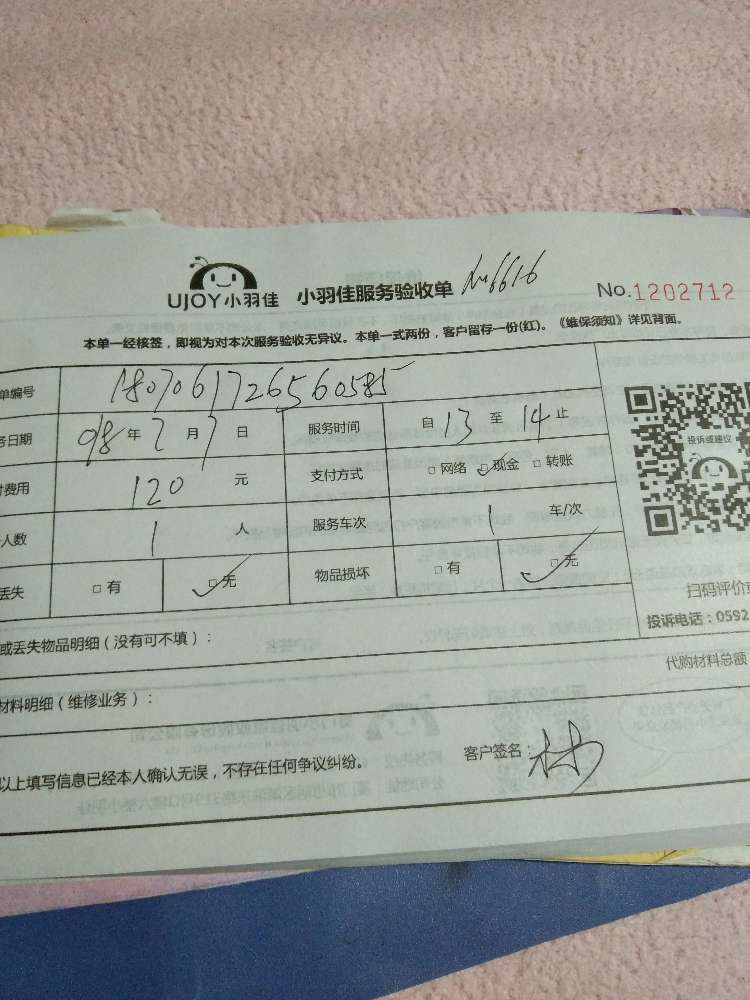 UJOY小羽佳 小羽佳服务验收单 No.1202712
本单一经核签，即视为对本次服务验收无异议。本单一式两份，客户留存一份(红)。《维保须知》详见背面。
单编号 1807061726560585
务日期 年 7 月 7 日 服务时间 自 13 至 14 止
费用 120 元 支付方式 □网络 □现金 □转账
人数 1 人 服务车次 1 车/次
丢失 □有 □无 物品损坏 □有 □无
投诉或建议
扫码评价
投诉电话：0592
或丢失物品明细（没有可不填）：
代购材料总额
材料明细（维修业务）：
以上填写信息已经本人确认无误，不存在任何争议纠纷。 客户签名：